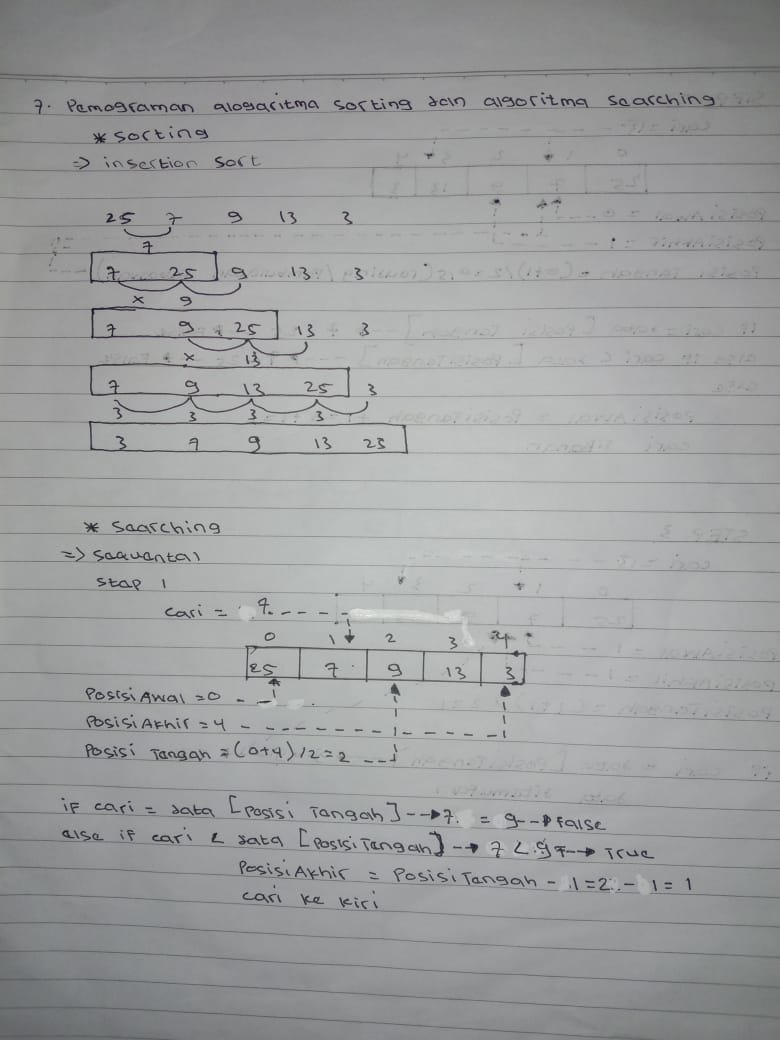 7. Pemograman alogaritma sorting dan algoritma searching
* sorting
=> insertion sort
25 7 9 13 3
7
7 25 9 13 3
x 9
7 9 25 13 3
x 13
7 9 13 25 3
3 3 3 3
3 7 9 13 25
* Searching
=> sequental
Step 1
cari = 7
0 1 2 3 4
25 7 9 13 3
Posisi Awal = 0
Posisi Akhir = 4
Posisi Tengah = (0+4)/2 = 2
if cari = data [Posisi Tengah] --> 7 = 9 --> False
else if cari < data [Posisi Tengah] --> 7 < 9 --> True
Posisi Akhir = Posisi Tengah - 1 = 2 - 1 = 1
cari ke kiri